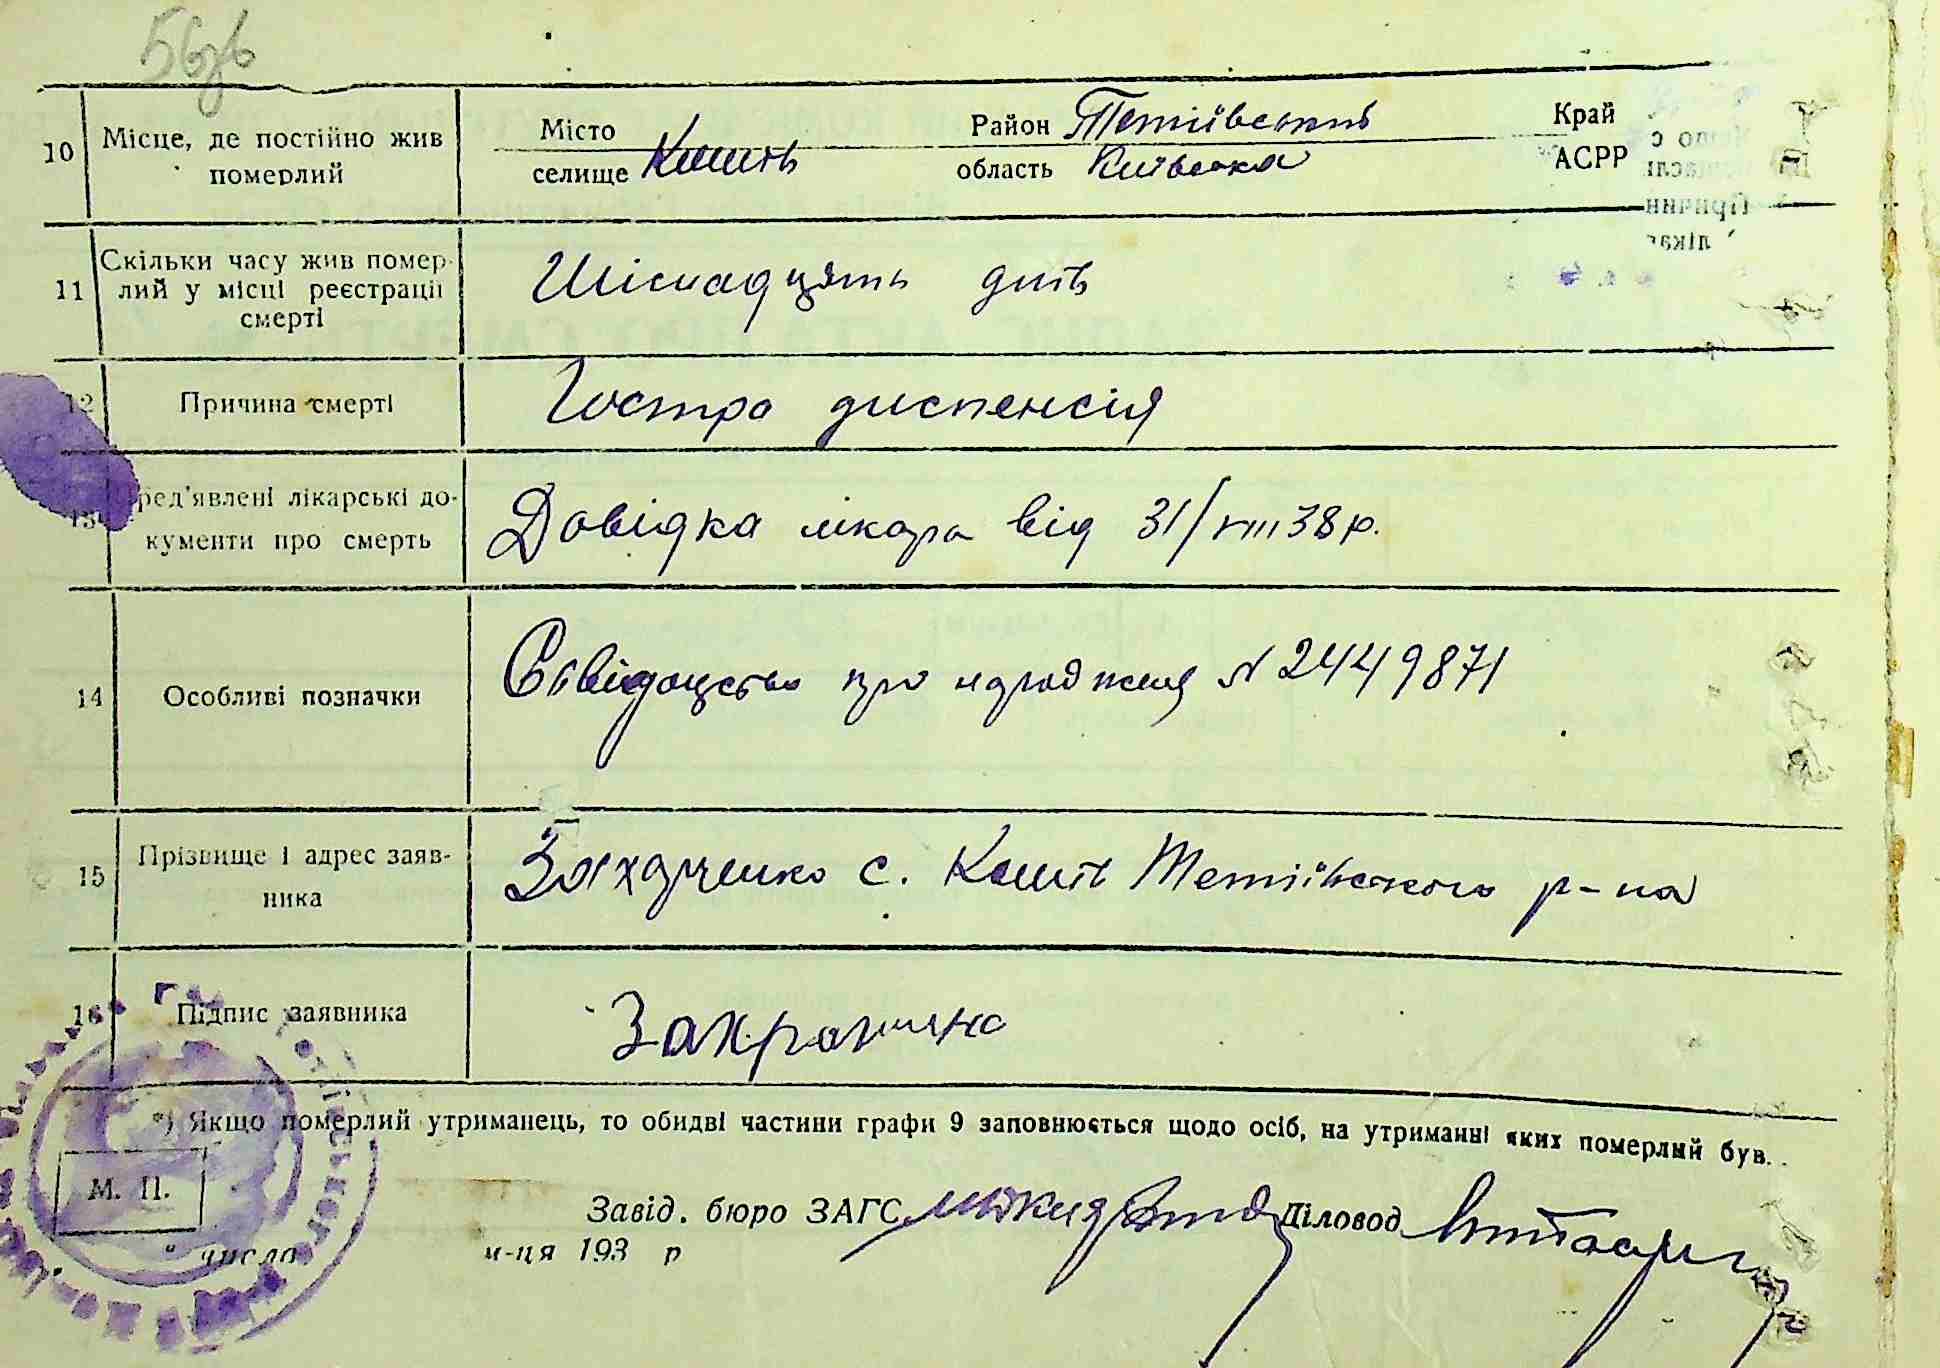 56зв
10
Місце, де постійно жив
померлий
Місто
селище
Кошів
Район Тетіївський
область Київська
Край
АСРР
11
Скільки часу жив помер-
лий у місці реєстрації
смерті
Шіснадцять днів
12
Причина смерті
Гостра диспенсія
13
Пред'явлені лікарські до-
кументи про смерть
Довідка лікаря від 31/VIII 38 р.
14
Особливі позначки
про народження № 2449871
15
Прізвище і адрес заяв-
ника
Захарченко с. Кошів Тетіївського р-на
16
Підпис заявника
*) Якщо померлий утриманець, то обидві частини графи 9 заповнюється щодо осіб, на утриманні яких померлий був.
М. П.
Завід. бюро ЗАГС
Діловод
" число
м-ця 193 р